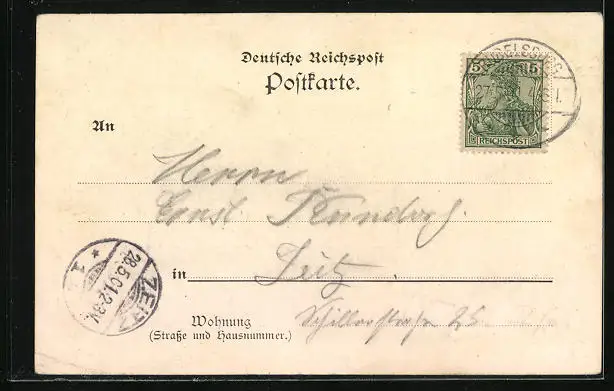 Deutsche Reichspost
Postkarte.
5 5
REICHSPOST
An
Herrn
Ernst
in Zeitz.
Wohnung Schillerstraße 25
(Straße und Hausnummer.)
ZEITZ
28.5.01.2-3N.
* 1